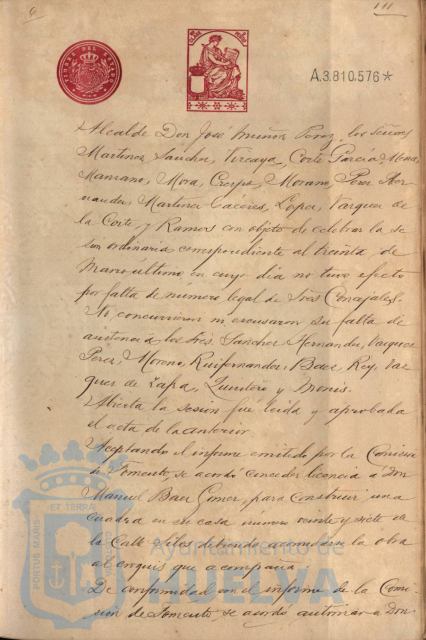 6
111
TIMBRE DEL ESTADO
A.3.810,576*
Alcalde Don José Muñoz Perez, los Señores
Martinez Sanchez, Vizcaya, Corte García Mora,
Manzano, Mora, Crespo, Morano, Perez Her-
nandez, Martinez Cáceres, Lopez, Vazquez de
la Corte y Ramos con objeto de celebrar la se
sion ordinaria correspondiente al treinta de
Marzo último en cuyo dia no tuvo efecto
por falta de número legal de Sres Concejales.
No concurrieron ni excusaron su falta de
asistencia los Sres. Sanchez Hernandez, Vazquez
Perez, Moreno, Ruifernandez, Baez, Rey, Vaz
quez de Zapa, Quintero y
Abierta la sesion fué leida y aprobada
el acta de la anterior
Aceptando el informe emitido por la Comision
de Fomento, se acordó conceder licencia á Don
Manuel Baez Gomez, para construir una
cuadra en su casa número veinte y siete de
la Calle debiendo acomodarse la obra
al croquis que acompaña.
De conformidad con el informe de la Comi-
sion de Fomento se acordó autorizar a Don
PORTUS MARIS ET TERRAE
Ayuntamiento de
HUELVA